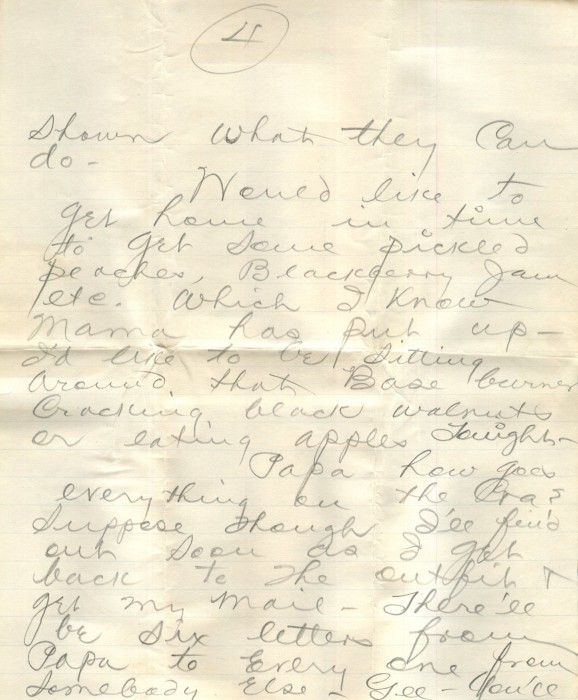 4
Shown what they Can
do -
Would like to
get home in time
to get some pickled
peaches, Blackberry Jam
etc. Which I Know
Mama has put up -
I'd like to be sitting
around that Base burner
Cracking black walnuts
or eating apples Tonight -
Papa how goes
everything on the
Suppose though I'll find
out soon as I get
back to the outfit &
get my mail - There'll
be six letters from
Papa to Every one from
Somebody Else - Gee - You've